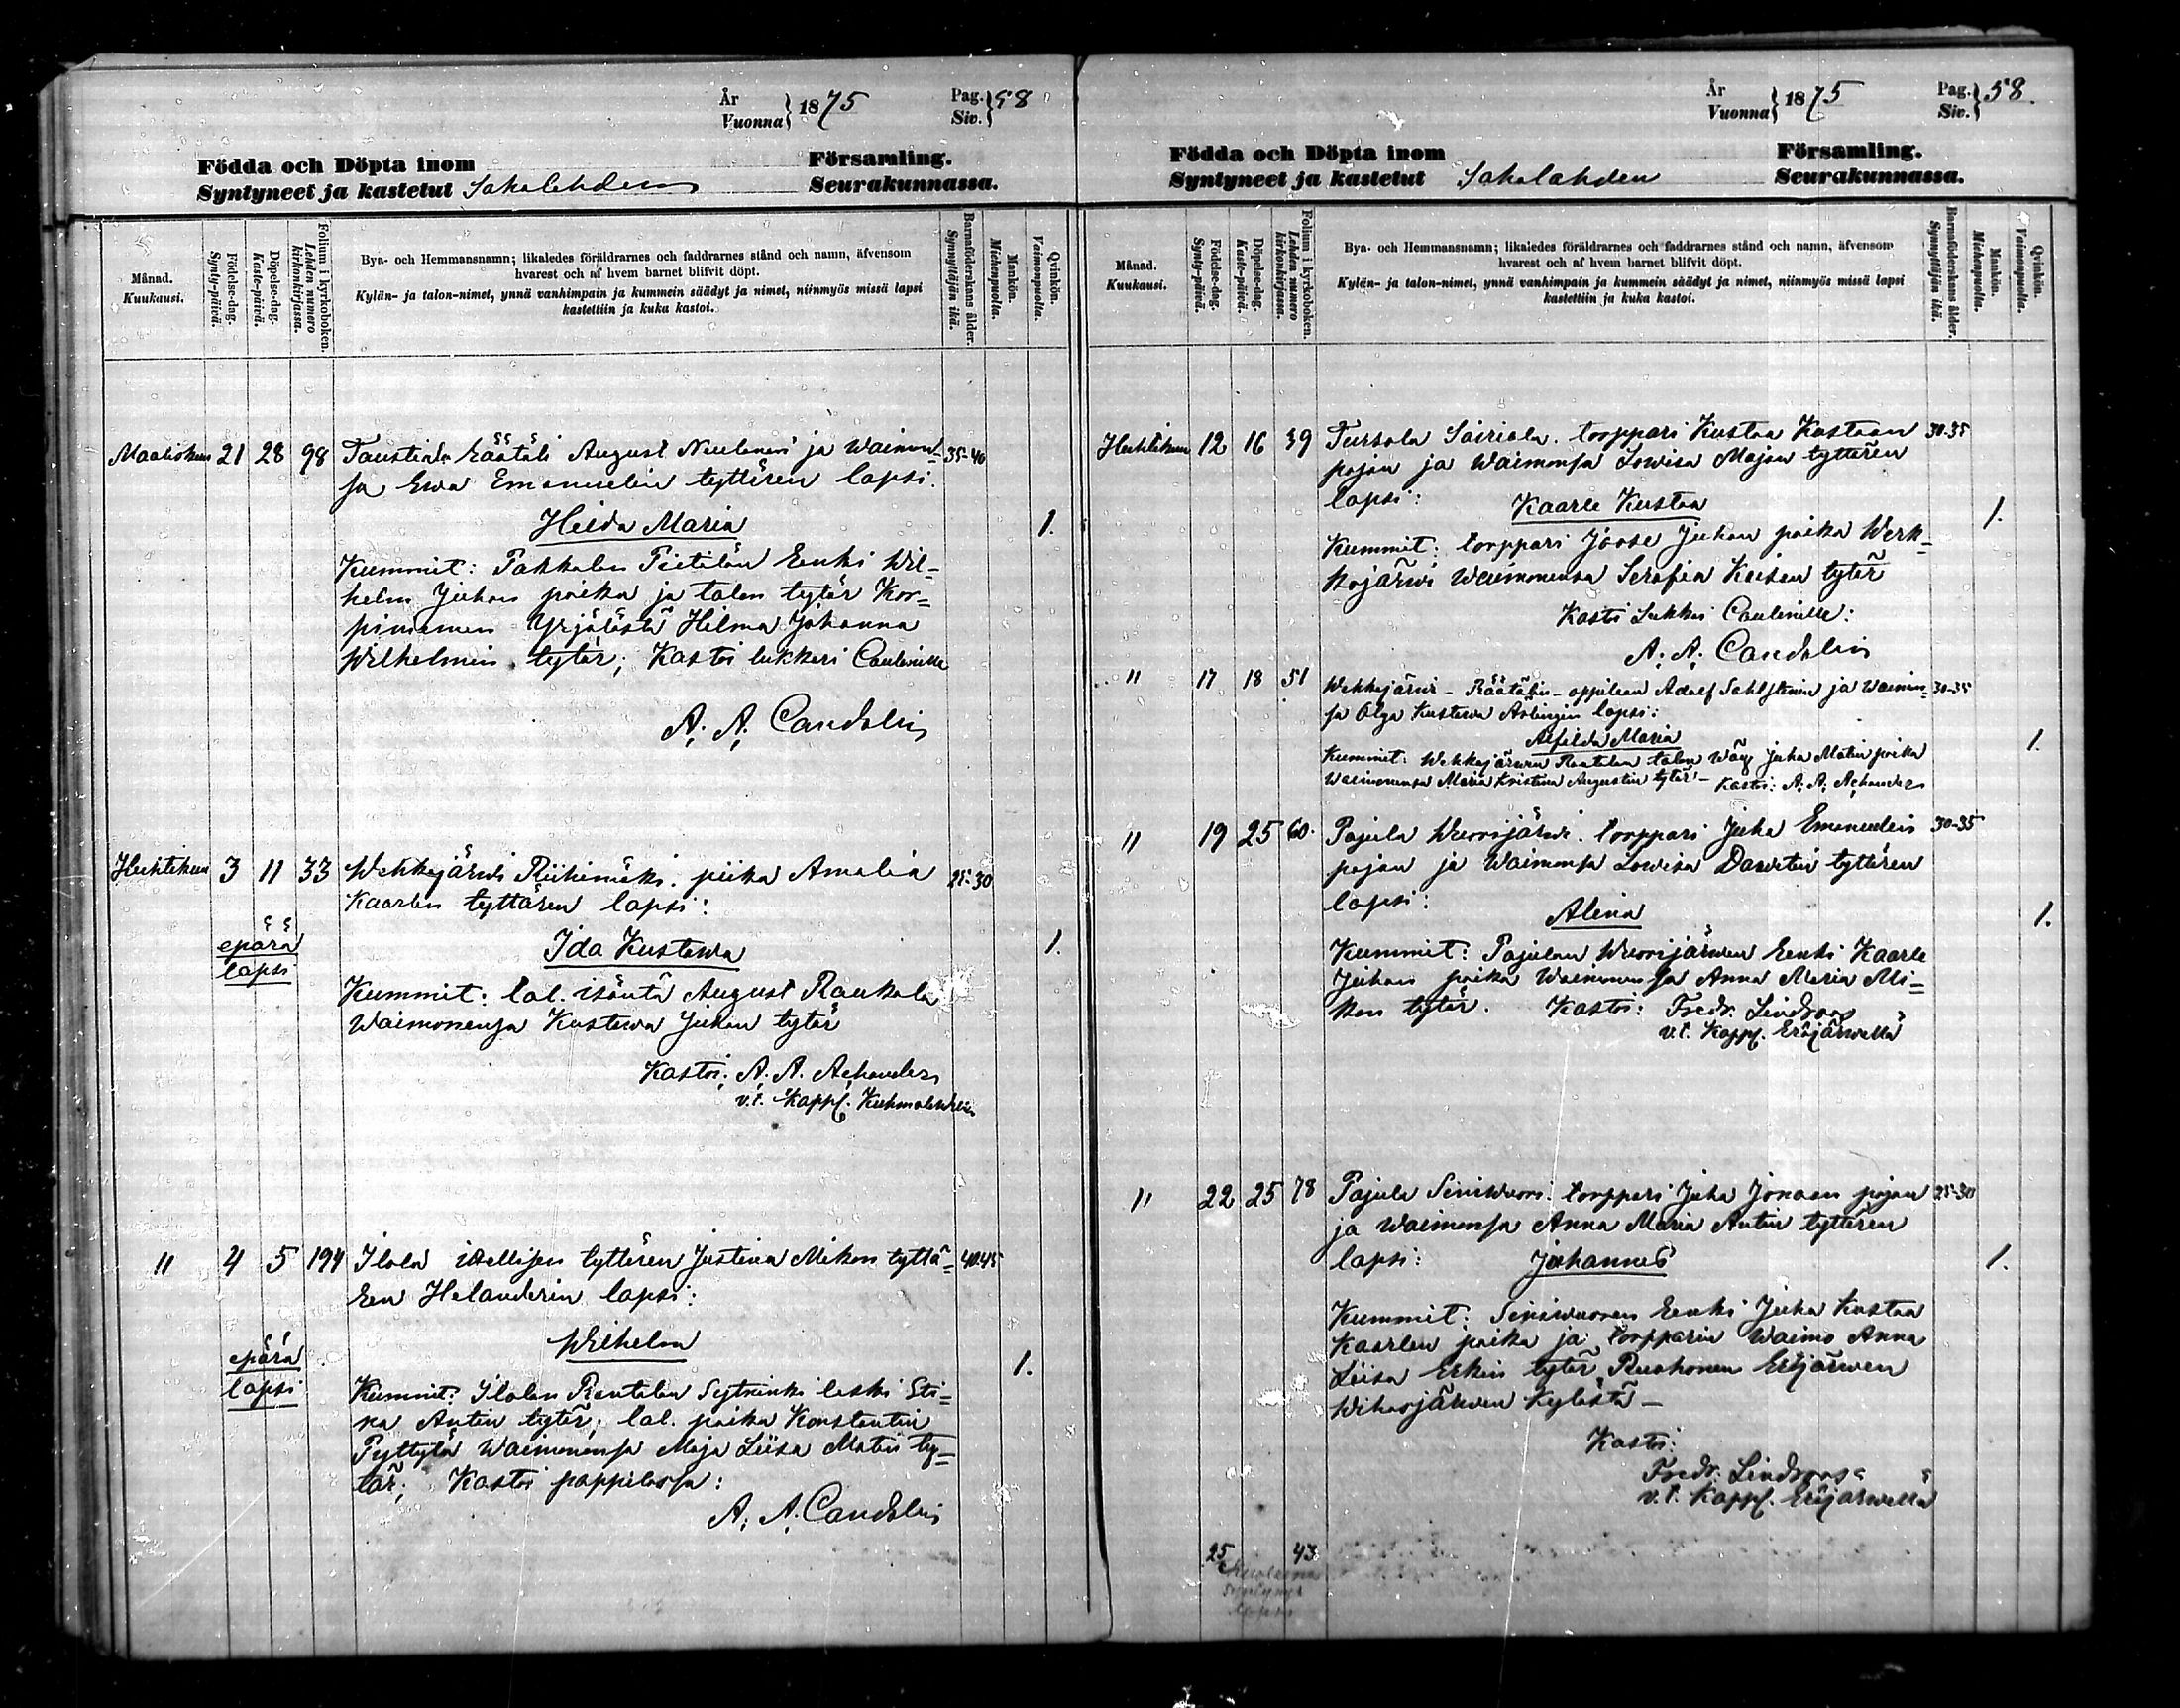 År
Vuonna } 1875
Pag.
Siv. } 58
Födda och Döpta inom Församling.
Syntyneet ja kastetut Sahalahden Seurakunnassa.
Månad.
Kuukausi.
Födelse-dag.
Synty-päivä.
Döpelse-dag.
Kaste-päivä.
Folium i kyrkoboken.
Lehden numero kirkonkirjassa.
Bya- och Hemmansnamn; likaledes föräldrarnes och faddrarnes stånd och namn, äfvensom
hvarest och af hvem barnet blifvit döpt.
Kylän- ja talon-nimet, ynnä vanhimpain ja kummein säädyt ja nimet, niinmyös missä lapsi
kastettiin ja kuka kastoi.
Barnaföderskans ålder.
Synnyttäjän ikä.
Mankön.
Miehenpuolta.
Qvinkön.
Vaimonpuolta.
Maaliskuu 21 28 98 Taustiala Räätäli August Neulanen ja Waimon- 35-40
sa Ewa Emanuelin tyttären lapsi.
Hilda Maria 1.
Kummit: Pakkalan Pietilän Renki Wil=
helm Juhan poika ja talon tytär Kor=
piniemen Yrjölästä Hilma Johanna
Wilhelmin tytär; Kastoi lukkari
A. A. Candolin
Huhtikuu 3 11 33 Wehkajärwi Riihimäki. piika Amalia 25-30
Kaarlen tyttären lapsi:
epärä
lapsi
Ida Kustawa 1.
Kummit: tal. isäntä August Raukola
Waimonensa Kustawa Juhan tytär
Kastoi: A. A. Achander
v.t. Kappl. Kuhmalahdella
" 4 5 194 Ilola itellisen tyttären Justina Mikon tyttä= 40-45
ren Helanderin lapsi:
epärä
lapsi
Wilhelm 1.
Kummit: Ilolan Rantalan Sytninki leski Sti=
na Antin tytär; tal. poika Konstantin
Pyttylä Waimonensa Maja Liisa Matin ty=
tär; Kastoi pappilassa:
A. A. Candolin
År
Vuonna } 1875
Pag.
Siv. } 58.
Födda och Döpta inom Församling.
Syntyneet ja kastetut Sahalahden Seurakunnassa.
Månad.
Kuukausi.
Födelse-dag.
Synty-päivä.
Döpelse-dag.
Kaste-päivä.
Folium i kyrkoboken.
Lehden numero kirkonkirjassa.
Bya- och Hemmansnamn; likaledes föräldrarnes och faddrarnes stånd och namn, äfvensom
hvarest och af hvem barnet blifvit döpt.
Kylän- ja talon-nimet, ynnä vanhimpain ja kummein säädyt ja nimet, niinmyös missä lapsi
kastettiin ja kuka kastoi.
Barnaföderskans ålder.
Synnyttäjän ikä.
Mankön.
Miehenpuolta.
Qvinkön.
Vaimonpuolta.
Huhtikuu 12 16 39 Tursola Sairiala. torppari Kustaa Kustaan 30-35
pojan ja Waimonsa Lowisa Majan tyttären
lapsi: Kaarle Kustaa 1.
Kummit: torppari Joose Juhan poika Werk=
kojärwi Waimonensa Serafia Keisan tytär
Kastoi Lukkari
A. A. Candolin
" 17 18 51 Wehkajärwi - Räätälin-oppilaan Adolf Sahlstenin ja Waimon= 30-35
sa Olga Kustawa lapsi:
Alfilda Maria 1.
Kummit: Wehkajärwen Rantalan talon Wäy Juha Matin poika
Waimonensa Maria Kristina Augustin tytär - Kastoi: A. A. Achander
" 19 25 60. Pajula Wuorijärwi. torppari Juha Emanuelin 30-35
pojan ja Waimonsa Lowisa Dawetin tyttären
lapsi: Alina 1.
Kummit: Pajulan Wuorijärwen Renki Kaarle
Juhan poika Waimonensa Anna Maria Mi=
kon tytär. Kastoi: Fredr. Lindroos
v.t. Kappl. Eräjärwellä
" 22 25 78 Pajula Siniwuori. torppari Juha Jonaan pojan 25-30
ja Waimonsa Anna Maria Antin tyttären
lapsi: Juhannes 1.
Kummit: Siniwuoren Renki Juha Kustaa
Kaarlen poika ja torpparin Waimo Anna
Liisa Erkin tytär Ruokonen Eräjärwen
Wihasjärwen kylästä -
Kastoi:
Fredr. Lindroos
v.t. Kappl. Eräjärwellä
25 43
Kuolleena
syntynyt
lapsi